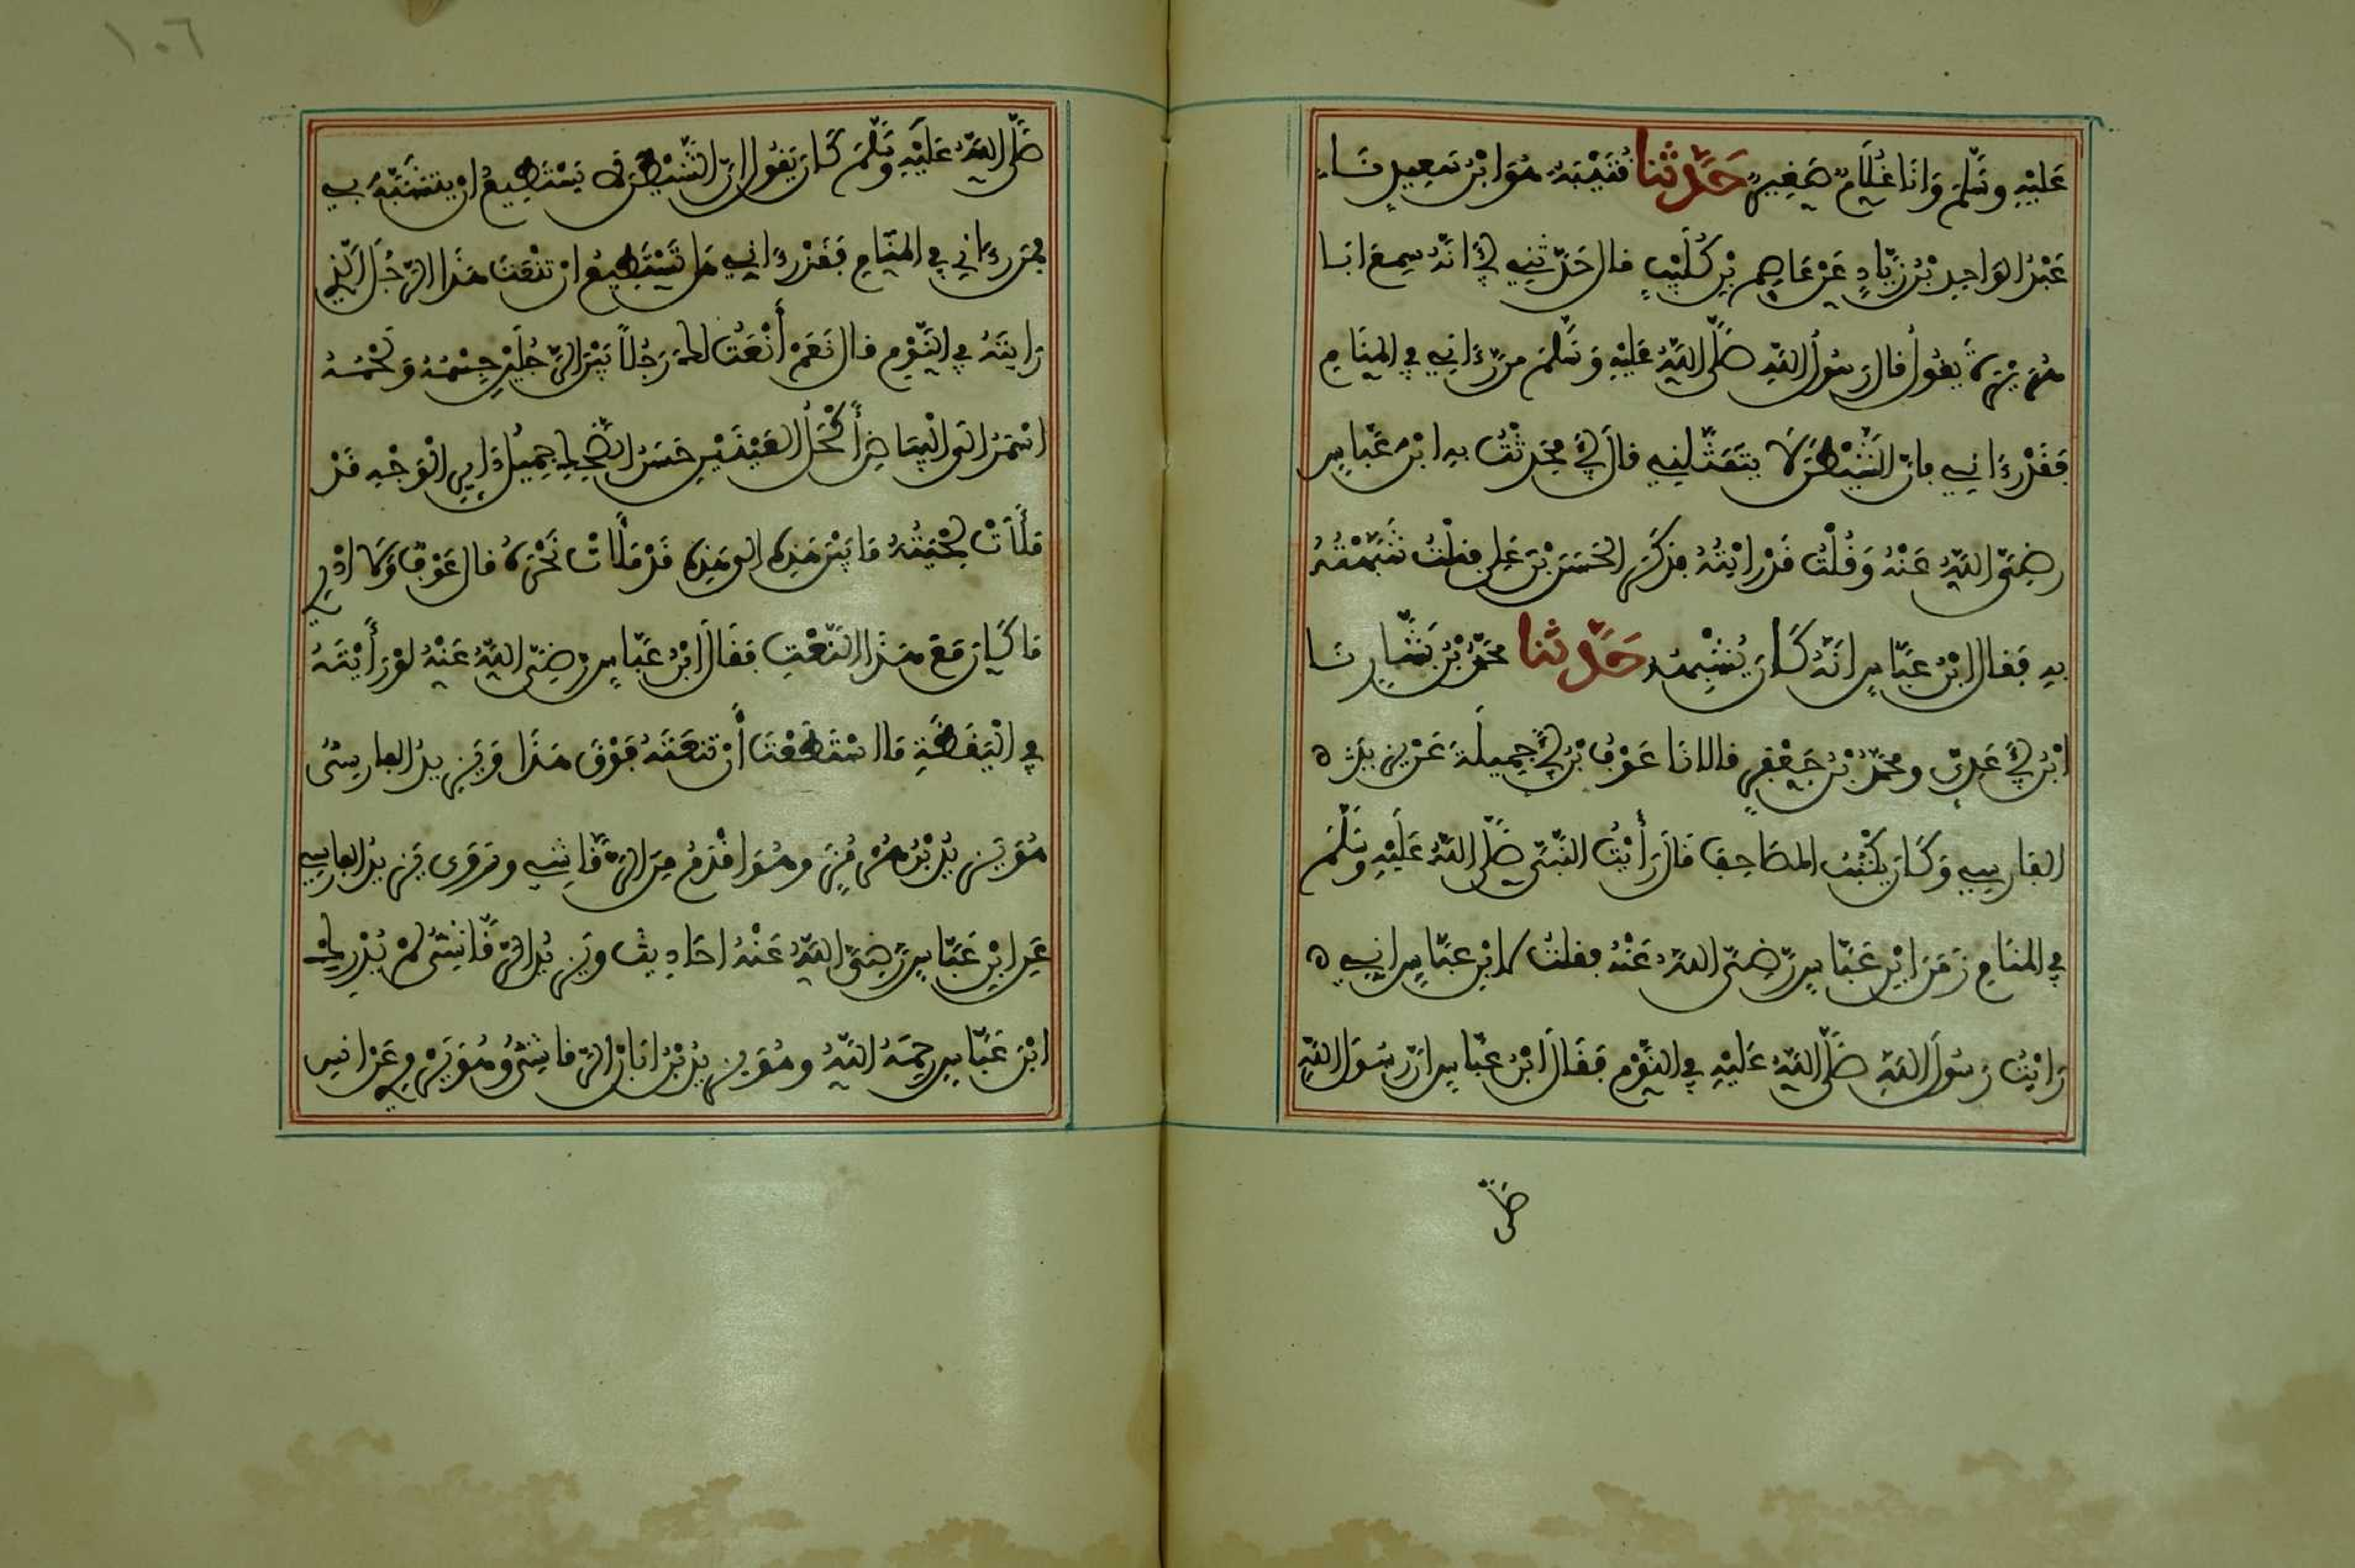 عَليْهِ وسَلّمَ وَانَا غُلَامٌ صَغِيرٌ حَدَّثنا قُتَيْبَةُ هُوَ ابْنُ سَعِيدٍ نَا
عَبْدُ الوَاحِدِ بْنُ زِيَّادٍ عَنْ عَاصِمِ بْنِ كُلَيْبٍ قال حَدّثَنِي أَبِي أنَّهُ سِمِعَ ابَا
هُرَيْرَةَ يَقُولُ قال رَسُولُ اللَّهِ صَلَّى اللَّهُ عَلَيْهِ وَسَلَّمَ مَن رَّءَانِي فِي المَنَامِ
فَقَدْ رَءَانِي فإنّ الشَّيْطَنَ لَا يتَمَثّلنِي قالَ أَبِي فحَدثْتُ بِهِ ابْنَ عَبَّاسٍ
رضِيَ اللَّهُ عَنْهُ وَقُلْتُ قَدْ رَايْتُهُ فذكَرْتُ الحَسَنَ بْنَ عَلِي فقلْتُ شَبَّهْتُهُ
بِهِ فَقال ابْنُ عَبَّاسٍ انَّهُ كَانَ يُشْبِهُهُ حَدَّثنا محمّدُ بْنُ بَشَّارٍ نَا
ابْنُ أَبِي عَدِيٍّ ومُحَمَّدُ بْنُ جَعْفَرٍ قالا نَا عَوْفُ بْنُ أَبِي جَمِيلَةَ عَنْ يزِيدَ
الفَارِسِي وَكَانَ يَكْتُبُ المصَاحِفَ قَالَ رَأَيْتُ النَّبِيَّ صَلَّى اللَّهُ عَلَيْهِ وَسَلَّمَ
فِي المنَامِ زَمَنَ ابْنِ عَبَّاسٍ رَّضِيَ اللَّهُ عَنْهُ فقلتُ لابْنِ عَبَّاسٍ انِي
رَايْتُ رَسُولَ اللَّهِ صَلَّى اللَّهُ عَلَيْهِ فِي النَّوْمِ فَقَالَ ابْنُ عَبَّاسٍ انّ رَسُولَ اللَّهِ
صَلّى
١٠٦
صَلَّى اللَّهُ عَلَيْهِ وَسَلَّمَ كَانَ يَقُولُ انّ الشَّيْطَنَ لَا يَسْتَطِيعُ انْ يتشَبَّهَ بِي
فمَن رءَانِي فِي المنَامِ فَقَدْ رءَانِي هَل تَسْتَطِيعُ انْ تنْعَتَ هَذَا الرَّجُلَ الّذِي
رَايتَهُ فِي النَّوْمِ قال نَعَمْ أنْعَتُ لكَ رَجُلاً بَيْنَ الرَّجُلَيْنِ جِسْمُهُ وَلَحْمُهُ
اسْمَرُ الَى البَيَاضِ أَكْحَلُ العَيْنَيْنِ حَسَنُ الضَّحِكِ جَمِيلُ دَوَايِرِ الْوَجْهِ قَدْ
مَلَأَتْ لِحْيَتُهُ مَا بَيْنَ هَذِهِ الى هَذِهِ قَدْ مَلَأتْ نَحْرَهُ قال عَوْفٌ وَلَا ادْرِي
مَا كَانَ مَعَ هَذَا النَّعْتِ فَقَالَ ابْنُ عَبَّاسٍ رَّضِيَ اللَّهُ عَنْهُ لَوْ رَأيْتَهُ
فِي الْيَقَظَةِ مَا اسْتَطَعْتَ أنْ تنعَتَهُ فَوْقَ هَذَا وَيَزِيدُ الفارِسِيُّ
هُوَ يَزِيدُ بْنُ هُرْمُزَ وهُوَ اقْدَمُ مِنَ الرَّقَّاشِي ورَوَى يَزِيدُ الفارسِي
عَنِ ابْنِ عَبَّاسٍ رَّضِيَ اللَّهُ عَنْهُ احَادِيثَ وَيَزِيدُ الرَّقَّاشِيُّ لَمْ يُدْرِكِ
ابْنَ عَبَّاسٍ رحِمَهُ اللَّهُ وهُوَ يزِيدُ بْنُ ابَانَ الرّقاشِيُّ وهُوَ يَرْوِي عَنْ انَسِ